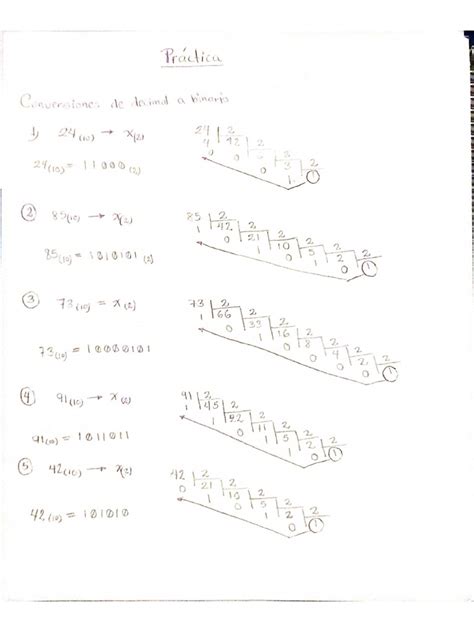 Práctica
Conversiones de decimal a binario
1) 24(10) → x(2)
24(10) = 11000(2)
24 | 2
② 85(10) → x(2)
85(10) = 1010101(2)
85 | 2
1 42 | 2
0 21 | 2
1 10 | 2
0 5 | 2
1 2 | 2
0 ①
③ 73(10) = x(2)
73(10) = 10000101
73 | 2
1 66 | 2
0 33 | 2
1 16 | 2
0 8 | 2
0 4 | 2
0 2 | 2
0 ①
④ 91(10) → x(2)
91(10) = 1011011
91 | 2
1 45 | 2
1 22 | 2
0 11 | 2
1 5 | 2
1 2 | 2
0 ①
⑤ 42(10) → x(2)
42(10) = 101010
42 | 2
0 21 | 2
1 10 | 2
0 5 | 2
1 2 | 2
0 ①